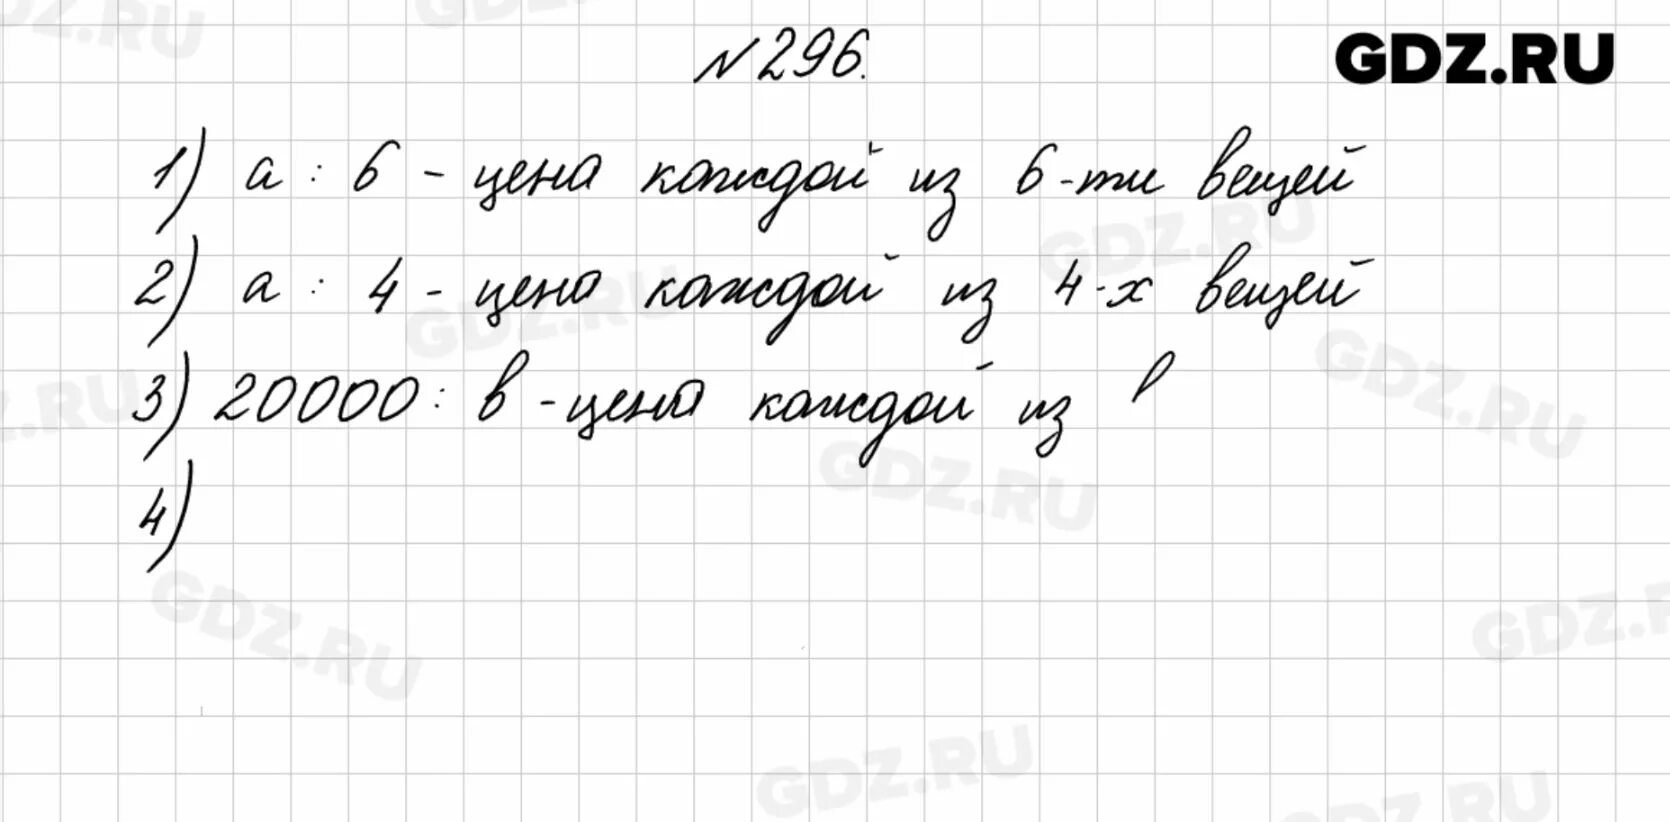 №296.
GDZ.RU
1) а : 6 - цена каждой из 6-ти вещей
2) а : 4 - цена каждой из 4-х вещей
3) 20000 : в - цена каждой из
4)